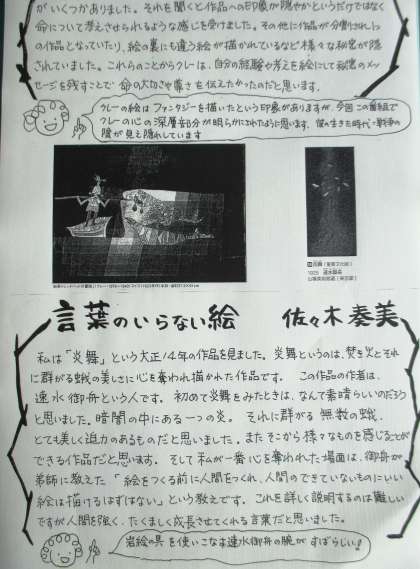 がいくつかありました。それを聞くと作品への印象が穏やかというだけではなく
命について考えさせられるような感じを受けました。その他に作品が分割され1つ
の作品となっていたり、絵の裏にも違う絵が描かれているなど様々な秘密が隠
されていました。これらのことからクレーは、自分の経験や考えを絵にして秘密のメッ
セージを残すことで 命の大切さや尊さを伝えたかったのだと思います。
クレーの絵はファンタジーを描いたという印象がありますが、今回この番組で
クレーの心の深層部分が明らかにされたように思います。彼の生きた時代=戦争の
陰が見え隠れしています
炎舞(重要文化財)
1925 速水御舟
山種美術館蔵(東京都)
言葉のいらない絵 佐々木奏美
私は「炎舞」という大正14年の作品を見ました。炎舞というのは、焚き火とそれ
に群がる蛾の美しさに心を奪われ描かれた作品です。この作品の作者は、
速水御舟という人です。初めて炎舞をみたときは、なんて素晴らしいのだろう
と思いました。暗闇の中にある一つの炎。それに群がる無数の蛾。
とても美しく迫力のあるものだと思いました。またそこから様々なものを感じることが
できる作品だと思います。そして私が一番心を奪われた場面は、御舟が
弟師に教えた「絵をつくる前に人間をつくれ、人間のできていないものにいい
絵は描けるはずはない」という教えです。これを詳しく説明するのは難しい
ですが人間を強く、たくましく成長させてくれる言葉だと思いました。
岩絵の具を使いこなす速水御舟の腕がすばらしい!!